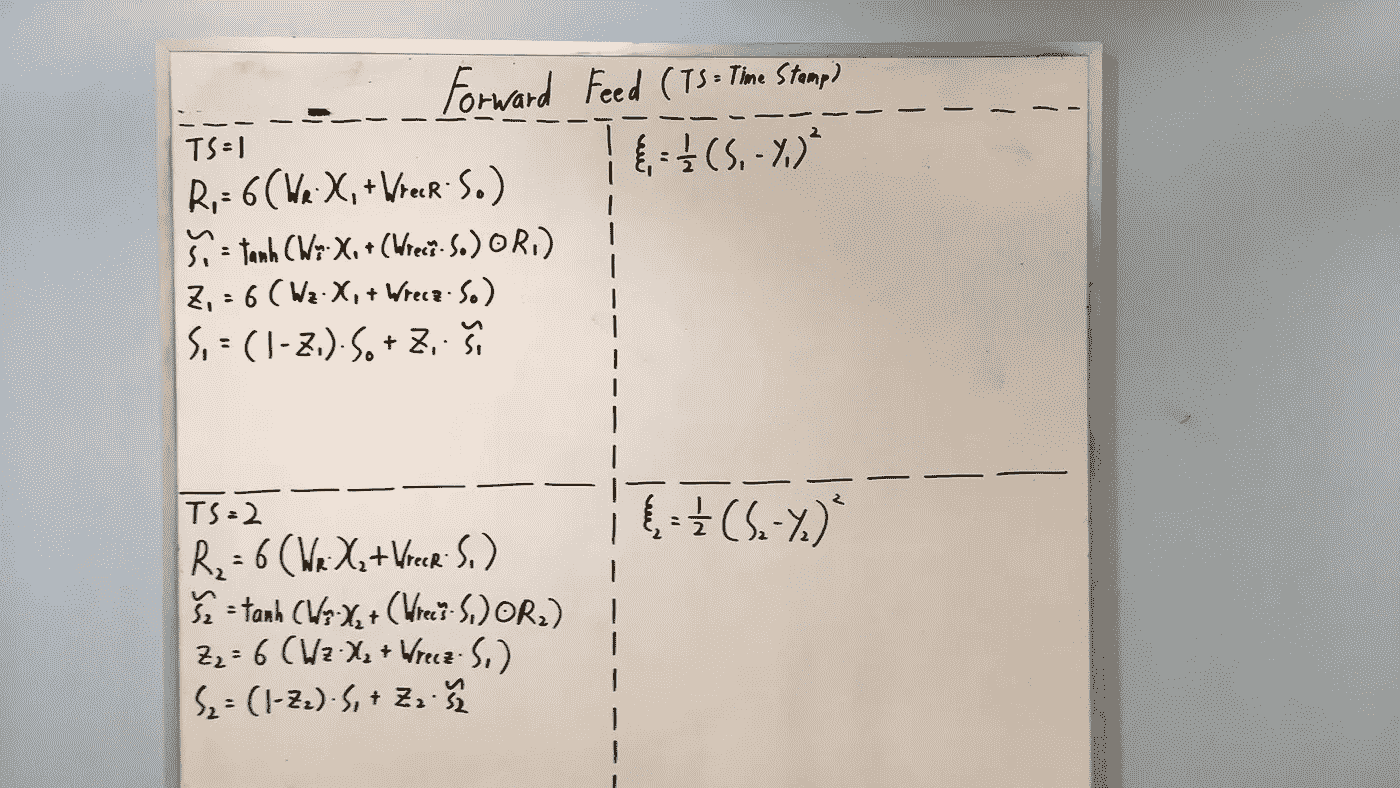 Forward Feed (TS = Time Stamp)
TS=1
R₁ = σ(W_R·X₁ + W_recR·S₀)
s̃₁ = tanh(W_s̃·X₁ + (W_recs̃·S₀) ⊙ R₁)
Z₁ = σ(W_z·X₁ + W_recz·S₀)
S₁ = (1-Z₁)·S₀ + Z₁·s̃₁
ξ₁ = 1/2 (S₁ - Y₁)²
TS=2
R₂ = σ(W_R·X₂ + W_recR·S₁)
s̃₂ = tanh(W_s̃·X₂ + (W_recs̃·S₁) ⊙ R₂)
Z₂ = σ(W_z·X₂ + W_recz·S₁)
S₂ = (1-Z₂)·S₁ + Z₂·s̃₂
ξ₂ = 1/2 (S₂ - Y₂)²